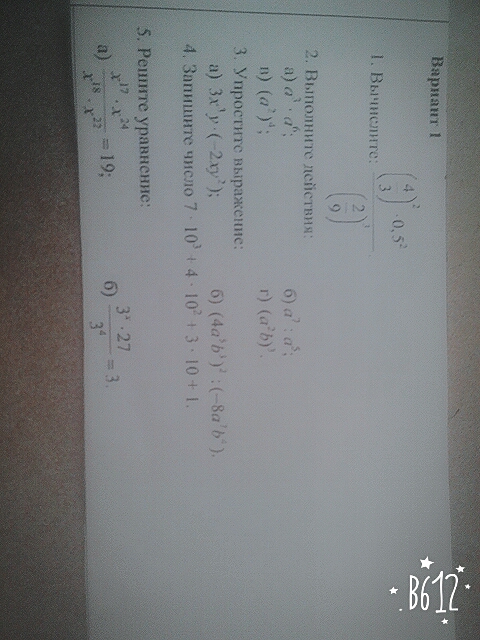 Вариант 1
1. Вычислите: ((4/3)² · 0,5²)/(2/9)¹.
2. Выполните действия:
а) a³ · a⁶; б) a⁷ : a⁵;
в) (a⁷)⁴; г) (a²b)³.
3. Упростите выражение:
а) 3x³y · (−2xy²); б) (4a⁵b³)² : (−8a⁷b⁴).
4. Запишите число 7 · 10³ + 4 · 10² + 3 · 10 + 1.
5. Решите уравнение:
а) (x¹⁷ · x²⁴)/(x¹⁸ · x²²) = 19; б) (3ˣ · 27)/3⁴ = 3.
B612